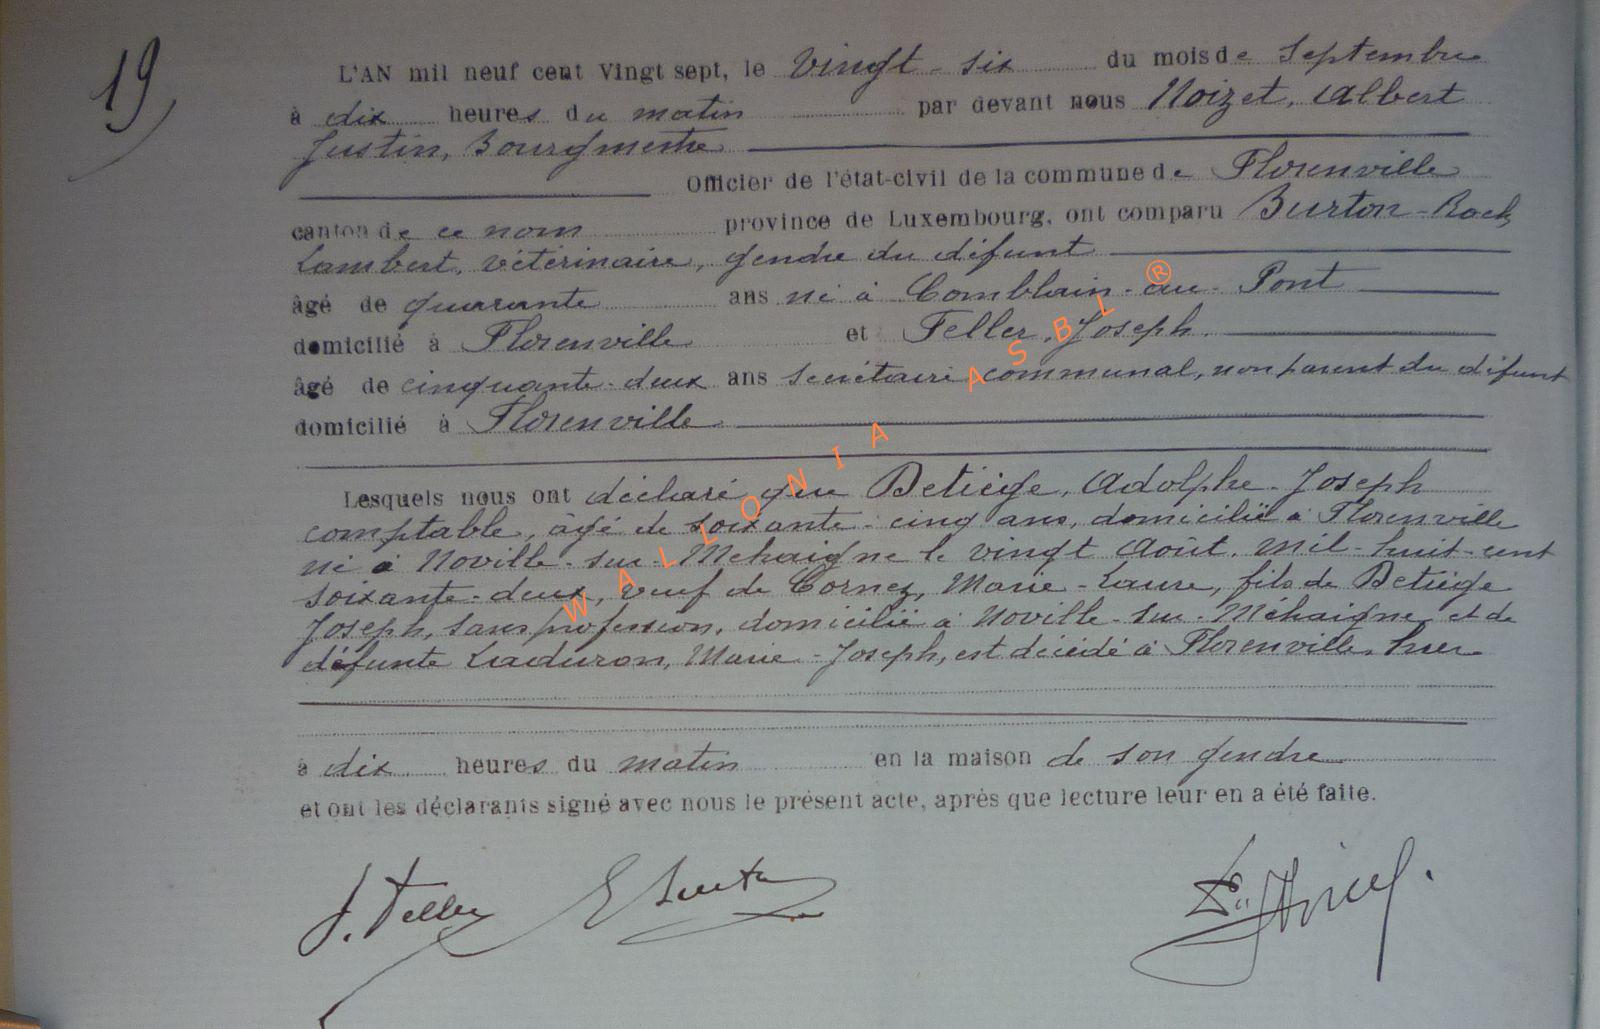 19
L'AN mil neuf cent Vingt sept, le vingt-six du mois de Septembre
à dix heures du matin par devant nous Noizet, Albert
Justin, Bourgmestre
Officier de l'état-civil de la commune de Florenville
canton de ce nom province de Luxembourg, ont comparu Burton-Rock,
Lambert, vétérinaire, gendre du défunt
âgé de quarante ans né à Comblain-au-Pont
domicilié à Florenville et Feller, Joseph
âgé de cinquante-deux ans secrétaire communal, non parent du défunt
domicilié à Florenville
Lesquels nous ont déclaré que Detiège, Adolphe-Joseph
comptable, âgé de soixante-cinq ans, domicilié à Florenville
né à Noville-sur-Mehaigne le vingt Août, mil-huit-cent
soixante-deux, veuf de Cornez, Marie-Laure, fils de Detiège
Joseph, sans profession, domicilié à Noville-sur-Méhaigne et de
défunte Laduron, Marie-Joseph, est décédé à Florenville, hier
à dix heures du matin en la maison de son gendre
et ont les déclarants signé avec nous le présent acte, après que lecture leur en a été faite.
J. Feller
WALLONIA ASBL ®